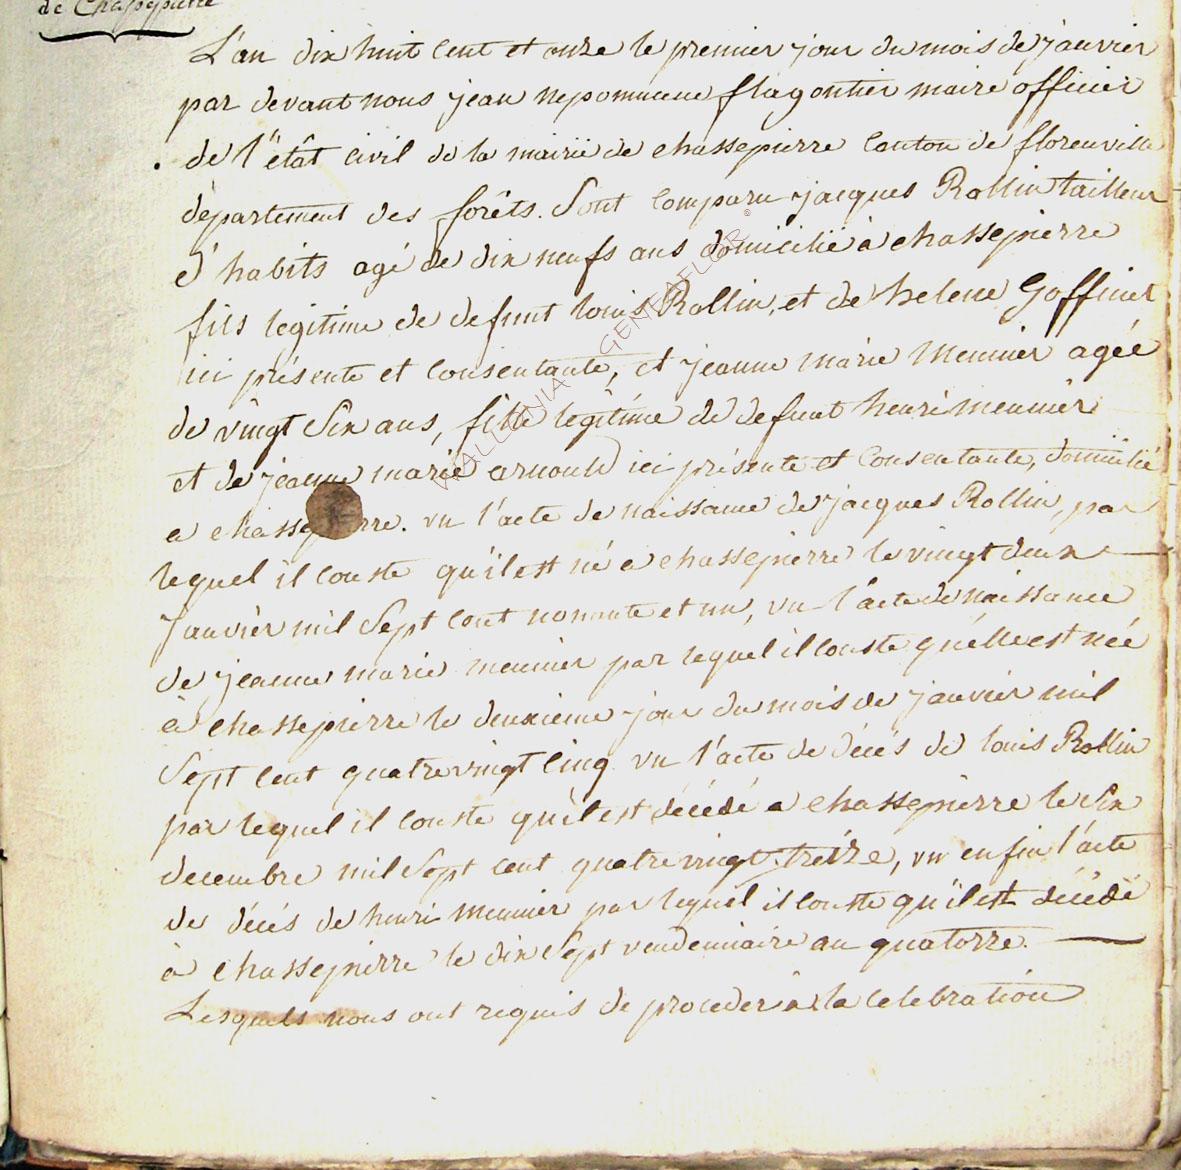 de Chassepierre
L'an dix huit cent et onze le premier jour du mois de janvier
par devant nous jean nepomucene flagontier maire officier
de l'état civil de la mairie de chassepierre canton de florenville
département des forêts. Sont comparu jacques Rollin tailleur
d'habits agé de dix neufs ans domicilié à chassepierre
fils légitime de defunt louis Rollin, et de helene Goffinet
ici présente et consentante, et jeanne marie meunier agée
de vingt six ans, fille légitime de defunt henri meunier
et de jeanne marie arnould ici présente et consentante, domicilié
a chassepierre. vu l'acte de naissance de jacques Rollin, par
lequel il conste qu'il est né a chassepierre le vingt deux
janvier mil sept cent nonante et un, vu l'acte de naissance
de jeanne marie meunier par lequel il conste qu'elle est née
à chassepierre le deuxieme jour du mois de janvier mil
sept cent quatre vingt cinq vu l'acte de décés de louis Rollin
par lequel il conste qu'il est décédé a chassepierre le six
decembre mil sept cent quatre vingt treize, vu enfin l'acte
de décés de henri meunier par lequel il conste qu'il est décédé
à chassepierre le dix sept vendemiaire an quatorze.
Lesquels nous ont requis de proceder à la celebration
WALLONIA GENEAFLOR ©